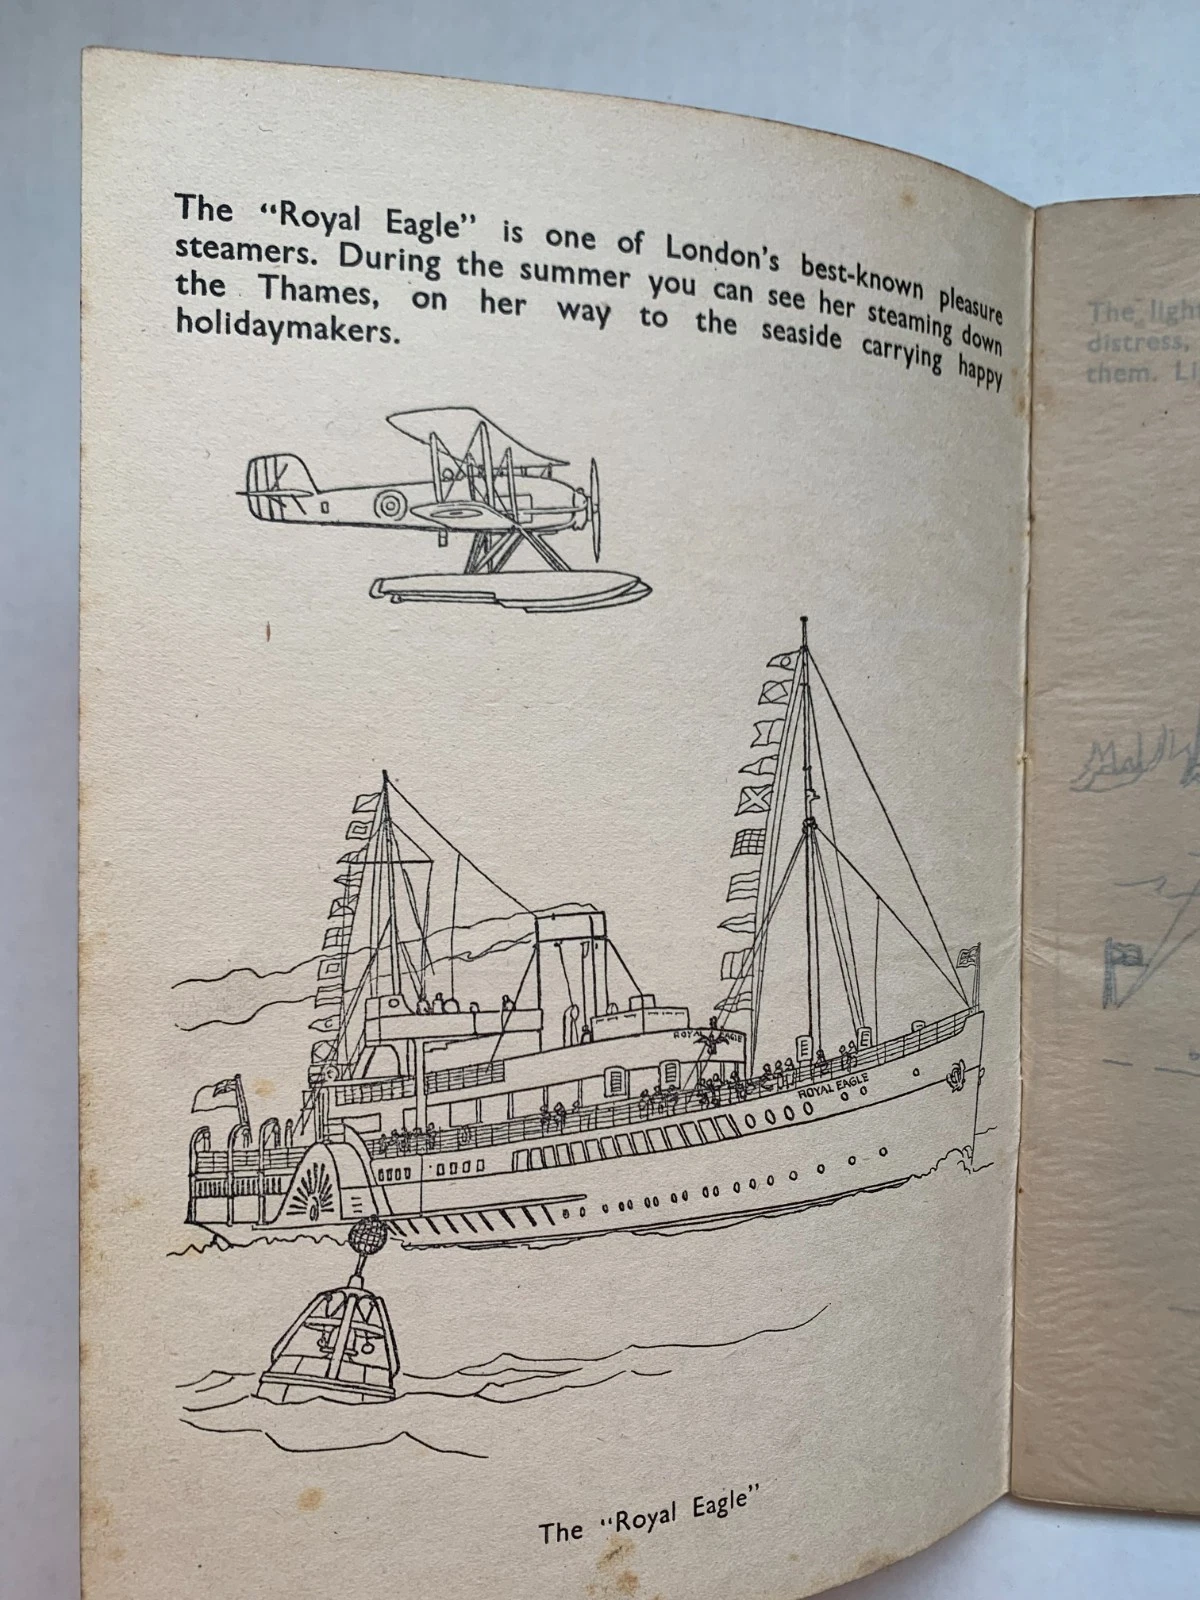 The “Royal Eagle” is one of London’s best-known pleasure
steamers. During the summer you can see her steaming down
the Thames, on her way to the seaside carrying happy
holidaymakers.
ROYAL EAGLE
ROYAL EAGLE
The “Royal Eagle”
The light
distress,
them.